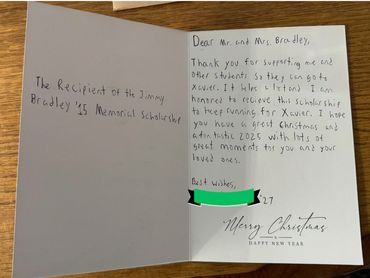 The Recipient of the Jimmy
Bradley '15 Memorial Scholarship
Dear Mr. and Mrs. Bradley,
Thank you for supporting me and
other students so they can go to
Xavier. It helps a lot and I am
honored to recieve this scholarship
to keep running for Xavier. I hope
you have a great Christmas and
a fantastic 2025 with lots of
great moments for you and your
loved ones.
Best wishes,
'27
Merry Christmas
&
HAPPY NEW YEAR